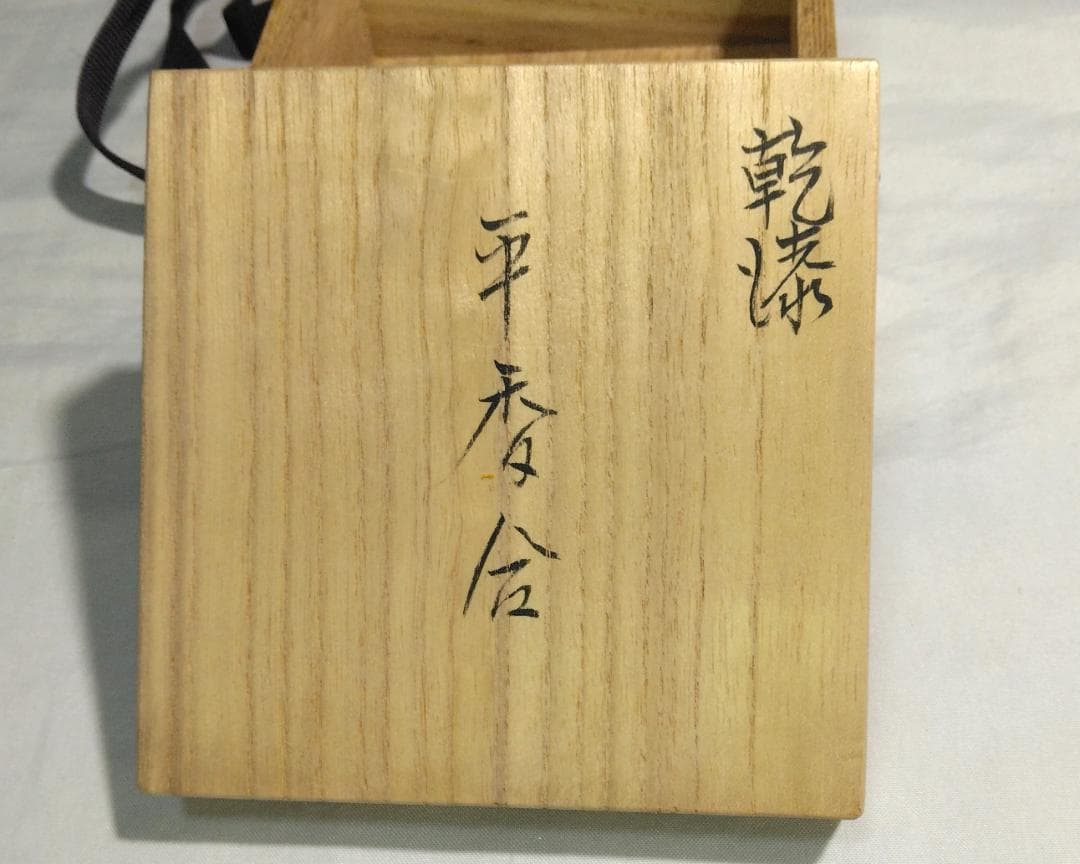 乾漆
平香合